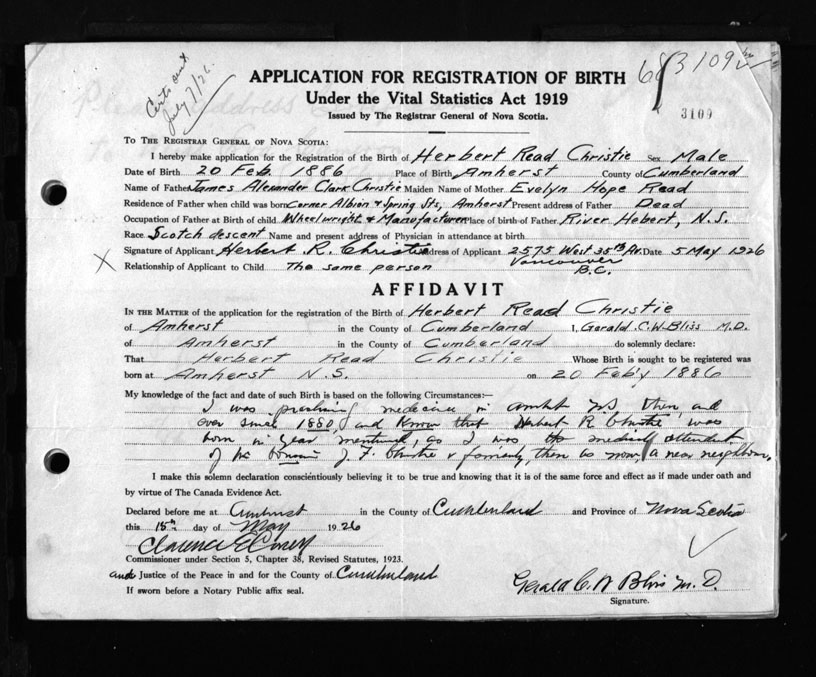 Certs sent
July 7/26.
APPLICATION FOR REGISTRATION OF BIRTH
683109
Under the Vital Statistics Act 1919
3109
Issued by The Registrar General of Nova Scotia.
TO THE REGISTRAR GENERAL OF NOVA SCOTIA:
I hereby make application for the Registration of the Birth of Herbert Read Christie Sex Male
Date of Birth 20 Feb. 1886 Place of Birth Amherst County of Cumberland
Name of Father James Alexander Clark Christie Maiden Name of Mother Evelyn Hope Read
Residence of Father when child was born Corner Albion & Spring Sts, Amherst Present address of Father Dead
Occupation of Father at Birth of child Wheelwright & Manufacturer Place of birth of Father River Hebert, N.S.
Race Scotch descent Name and present address of Physician in attendance at birth
Signature of Applicant Herbert R. Christie dress of Applicant 2575 West 35th Av. Date 5 May 1926
Vancouver
X Relationship of Applicant to Child The same person B.C.
AFFIDAVIT
IN THE MATTER of the application for the registration of the Birth of Herbert Read Christie
of Amherst in the County of Cumberland I, Gerald C.W. Bliss M.D.
of Amherst in the County of Cumberland do solemnly declare:
That Herbert Read Christie Whose Birth is sought to be registered was
born at Amherst N.S. on 20 Feb'y 1886
My knowledge of the fact and date of such Birth is based on the following Circumstances:—
I was practising medicine in N S then and
ever since 1880, and know that Herbert R Christie was
born in year mentioned, as I was the medical attendant
of his J. F. Christie & family, then as now, a near neighbour.
I make this solemn declaration conscientiously believing it to be true and knowing that it is of the same force and effect as if made under oath and
by virtue of The Canada Evidence Act.
Declared before me at Amherst in the County of Cumberland and Province of Nova Scotia
this 15th day of May 1926
Clarence E
Commissioner under Section 5, Chapter 38, Revised Statutes, 1923.
and Justice of the Peace in and for the County of Cumberland
Gerald C W Bliss M. D.
If sworn before a Notary Public affix seal.
Signature.